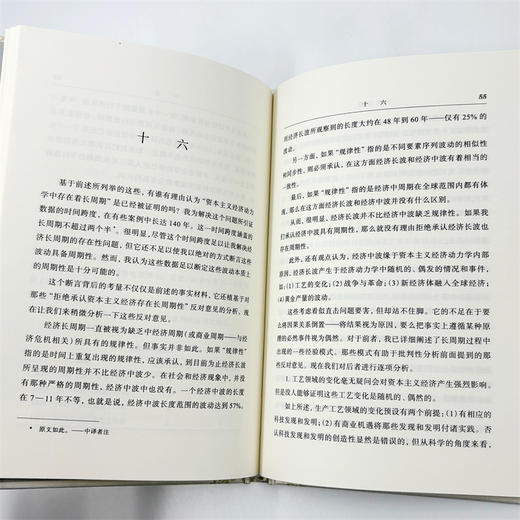 十　六
基于前述所列举的这些，有谁有理由认为“资本主义经济动力
学中存在着长周期”是已经被证明的吗？我为解决这个问题所引证
数据的时间跨度，在有些案例中长达140年。这一时间跨度涵盖的
长周期不超过两个半*。很明显，尽管这个时间跨度足以让我解决经
济长周期的存在性问题，但它还不足以使我绝对的方式断言这些
波动具备周期性。然而，我认为这些数据足以断定这些波动本质上
的周期性是十分可能的。
这个断言背后的考量不仅仅是前述的事实材料，它还植基于对
那些“拒绝承认资本主义经济存在长周期性”反对意见的分析，现在
让我们来稍微分析一下这些反对意见。
经济长周期一直被视为缺乏中经济周期（或商业周期——与经
济危机相关）所具有的规律性。但事实并非如此。如果“规律性”
指的是时间上重复出现的规律性，应该承认，到目前为止经济长波
所呈现的周期性并不比经济中波少。在社会和经济现象中，并没
有那种严格的周期性，经济中波中也没有。一个经济中波的长度
在7—11年不等，也就是说，经济中波长度范围的波动达到57%。
* 原文如此。——中译者注
十　六
55
而经济长波所观察到的长度大约在48年到60年——仅有25%的
波动。
另一方面，如果“规律性”指的是不同要素序列波动的相似性
和同步性，则必须承认，在这方面经济长波和经济中波有着相当的
一致性。
最后，如果“规律性”指的是经济中周期在全球范围内都有体
现，那么在这方面经济长波和经济中波并没有什么区别。
从而，很明显，经济长波并不比经济中波缺乏规律性。如果我
们承认经济中波具有周期性，那么就没有理由拒绝承认经济长波也
存在周期性。
此外，还有观点认为，经济中波缘于资本主义经济动力学内部
原因，经济长波产生于经济动力学中随机的、偶发的情况和事件，
如：(1)工艺的变化；(2)战争与革命；(3)新经济体融入全球经济；
(4)黄金产量的波动。
这些考虑看似直击问题要害，但却站不住脚。它们的不足在于
将因果关系倒置——将结果视为原因，要么把事实上遵循某种原理
的必然事件视为偶然。对于前者，我已详细阐述了长周期过程中出
现的一些经验模式。那些模式有助于批判性分析前面提到的一些
反对意见。现在我们对后者进行逐项分析。
1. 工艺领域的变化毫无疑问会对资本主义经济产生强烈影响。
但是没人能够证明这些工艺变化是随机的、偶然的。
如上所述，生产工艺领域的变化预设有两个前提：(1)有相应的
科技发现和发明；(2)有商业机遇将那些发现和发明付诸实践。否
认科技发现和发明的创造性显然是错误的，但从科学的角度来看，